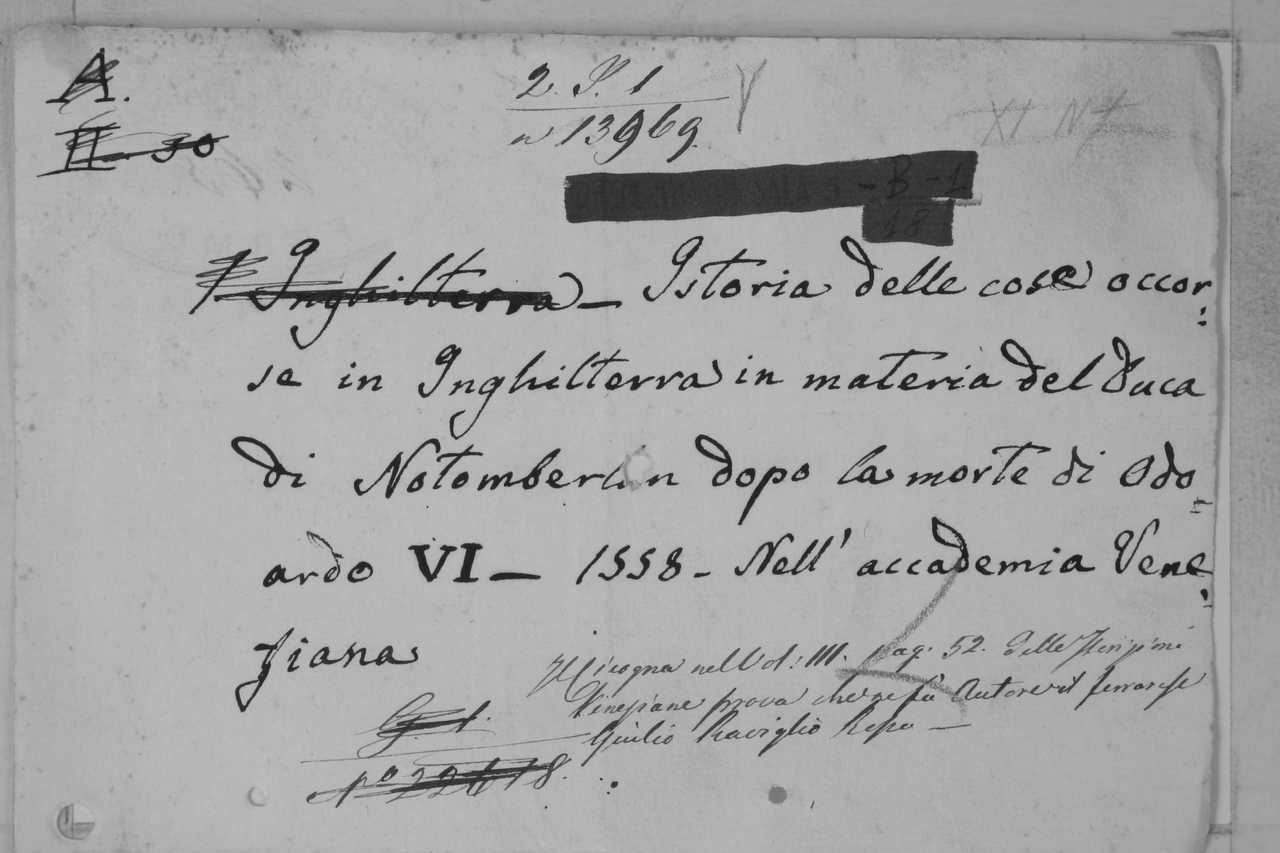 A.
II. 30
2. P. 1
n 13969.
XI N
- B - 1
18
Inghilterra - Istoria delle cose occor-
se in Inghilterra in materia del Duca
di Notomberlan dopo la morte di Odo-
ardo VI - 1558 - Nell' accademia Vene-
ziana
Il Cicogna nel Vol: III. pag. 52. delle Inscrizioni
Veneziane prova che ne fu Autore il ferrarese
Giulio Raviglio Rosso -
G. 1.
N.º 22618.